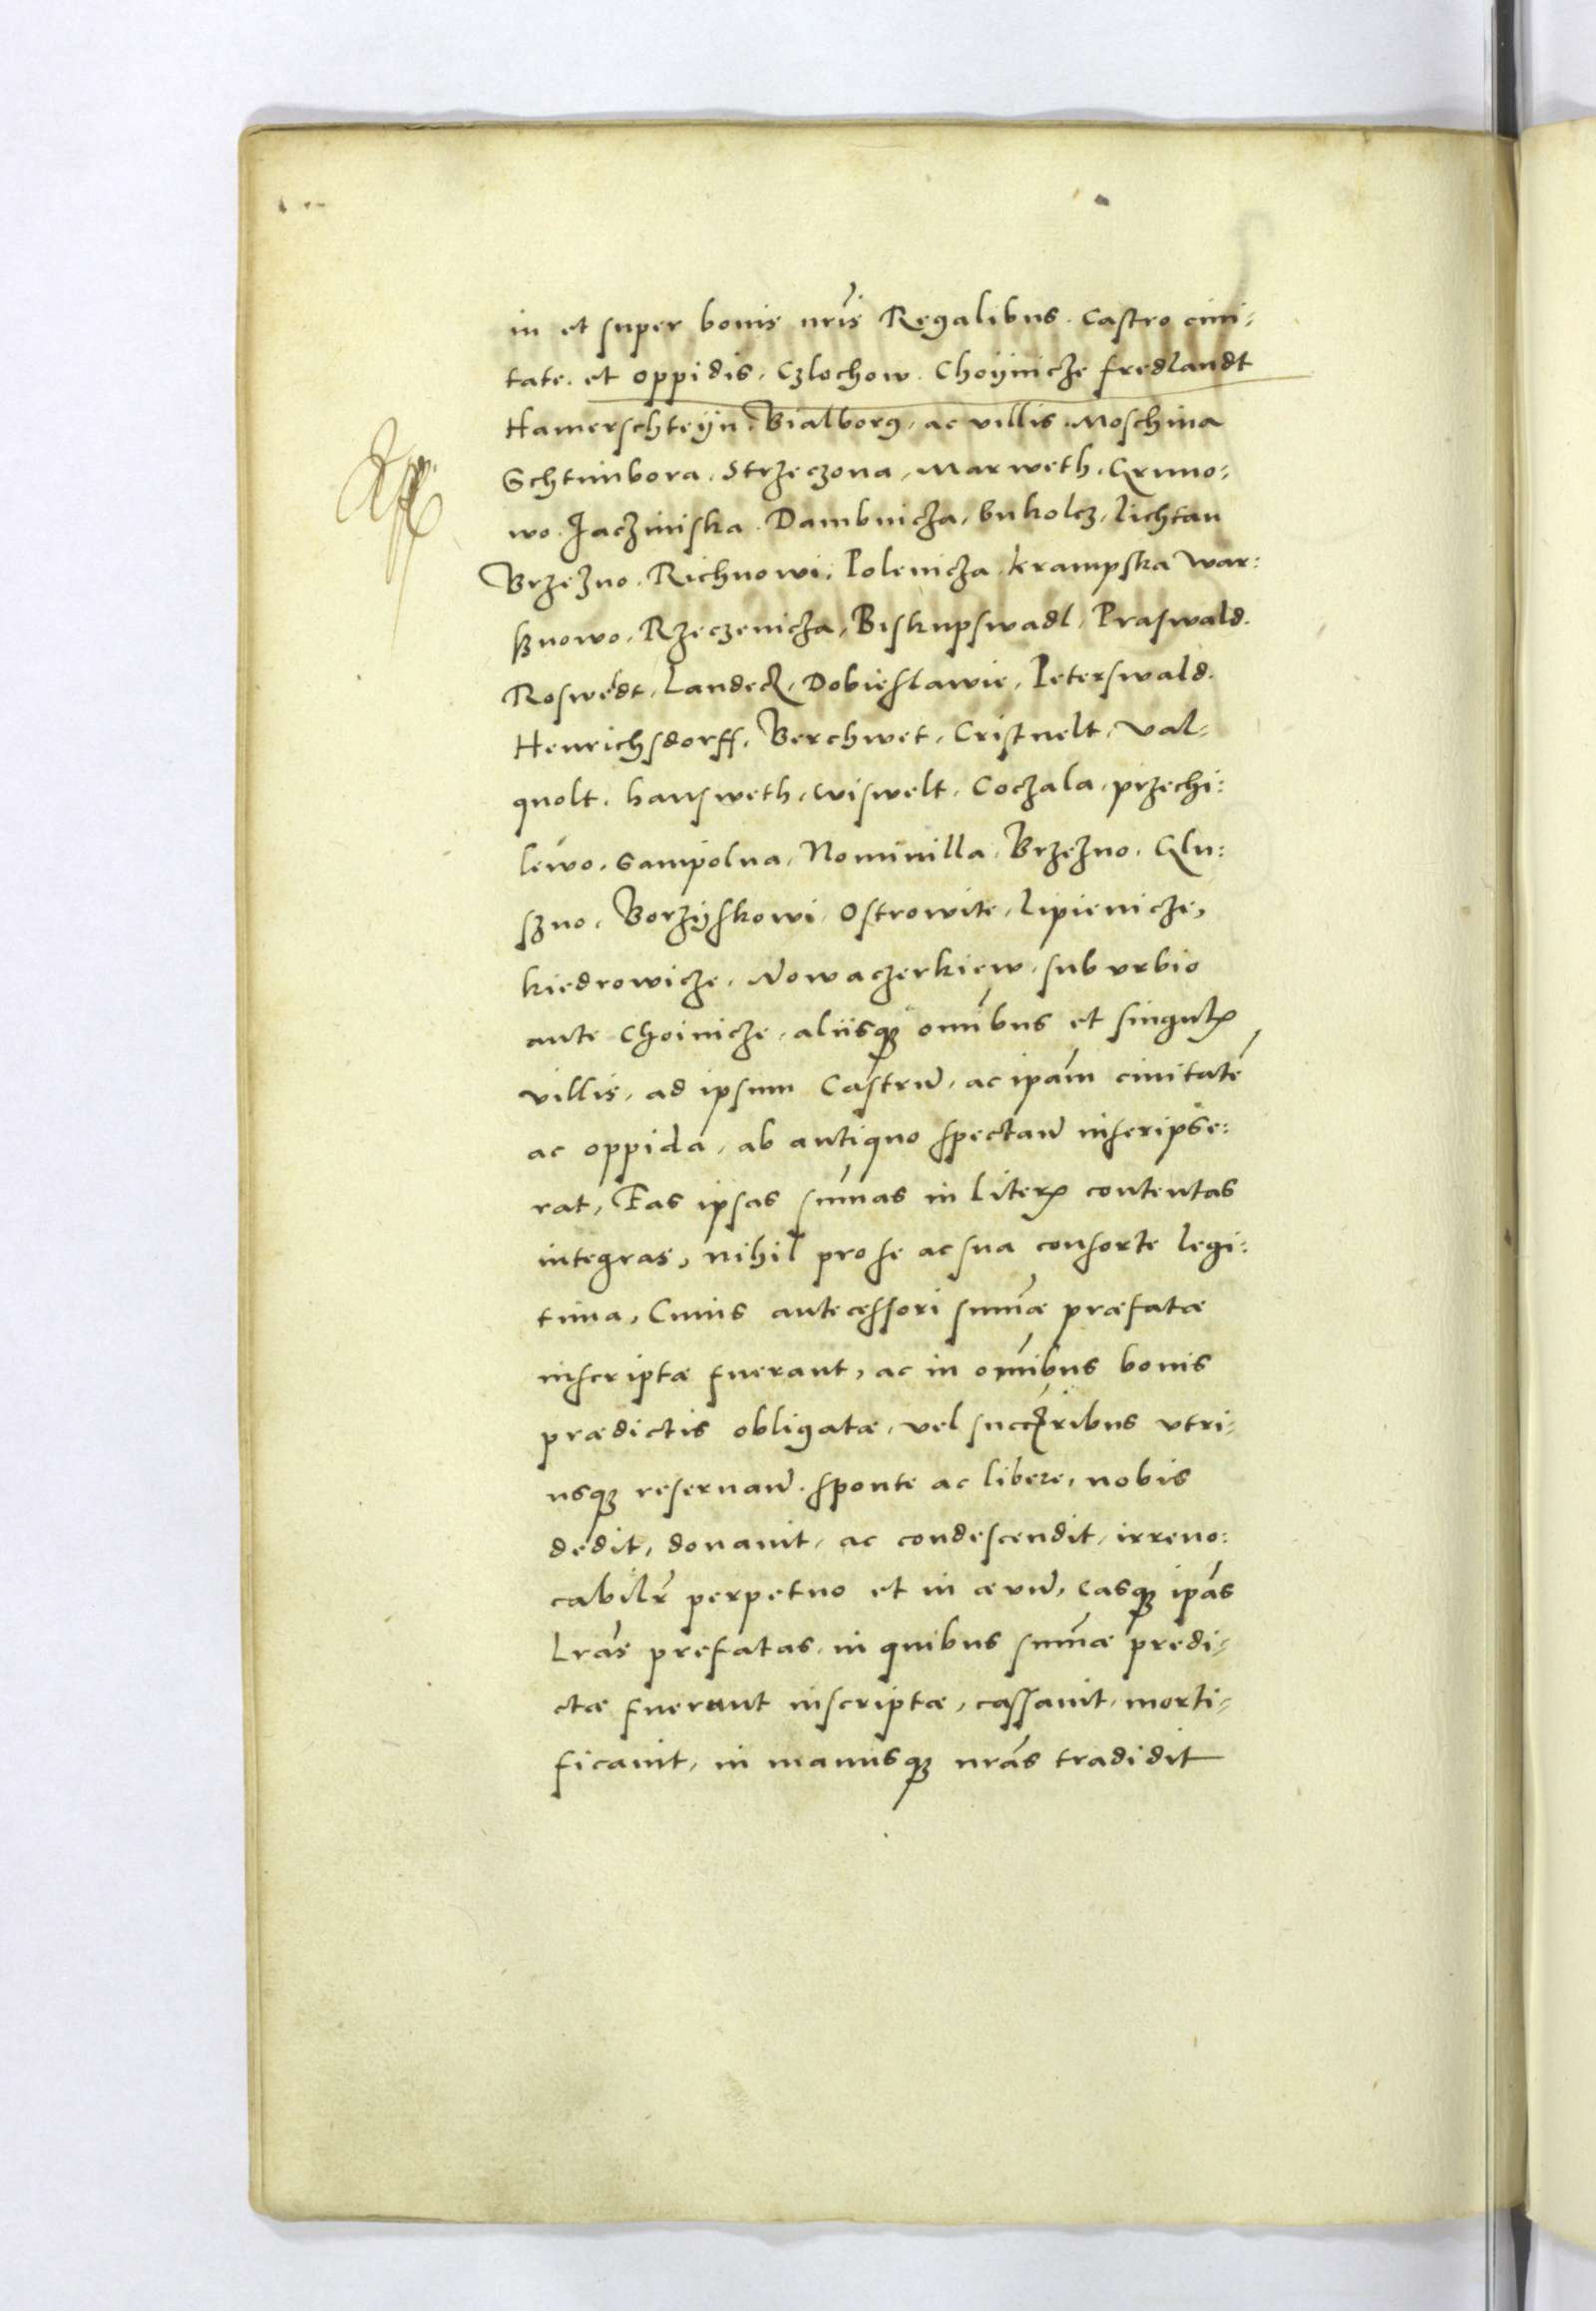 in et super bonis nr̃is Regalibus. Castro civi-
tate. et oppidis, Czlochow. Choÿnicze fredlandt
Hamerschteÿn. Bialborg, ac villis Moschina
Schtimbora. Strzeczona, Marweth. Gruno-
wo. Jaczmiska. Dambnicza, bukolcz, lichtan
Brzezno. Richnowi, Polenicza krampska War:
sznowo, Rzeczenicza, Biskupswadl, Praswald.
Roswedt, Landeck, Dobieslawie, Peterswald.
Henrichsdorff. Berchwet, Cristnelt, Val-
quolt. hansweth, wiswelt. Coczala, przechi:
lewo. Sampolna, Nominilla, Brzezno. Glu:
szno. Borzÿskowi, Ostrowite, lipienicze,
kiedrowicze. Nowaczerkiew, suburbio
ante Choinicze, aliisq; omĩbus et singul̃
villis, ad ipsum Castrũ, ac ip̃am civitatẽ
ac oppida, ab antiquo spectañ inscripse:
rat, Eas ipsas sum̃as in literȝ contentas
integras, nihil pro se ac sua consorte legi:
tima, Cuius antecessori sum̃æ præfatæ
inscriptæ fuerant, ac in om̃ibus bonis
prædictis obligatæ, vel succ̃ribus utri-
usq; reservañ. sponte ac libere, nobis
dedit, donavit, ac condescendit, irrevo:
cabilr̃ perpetuo et in ævũ, Easq; ip̃as
Lr̃as prefatas, in quibus sum̃æ predi-
ctæ fuerunt inscriptæ, cassavit, morti-
ficavit, in manusq; nr̃as tradidit